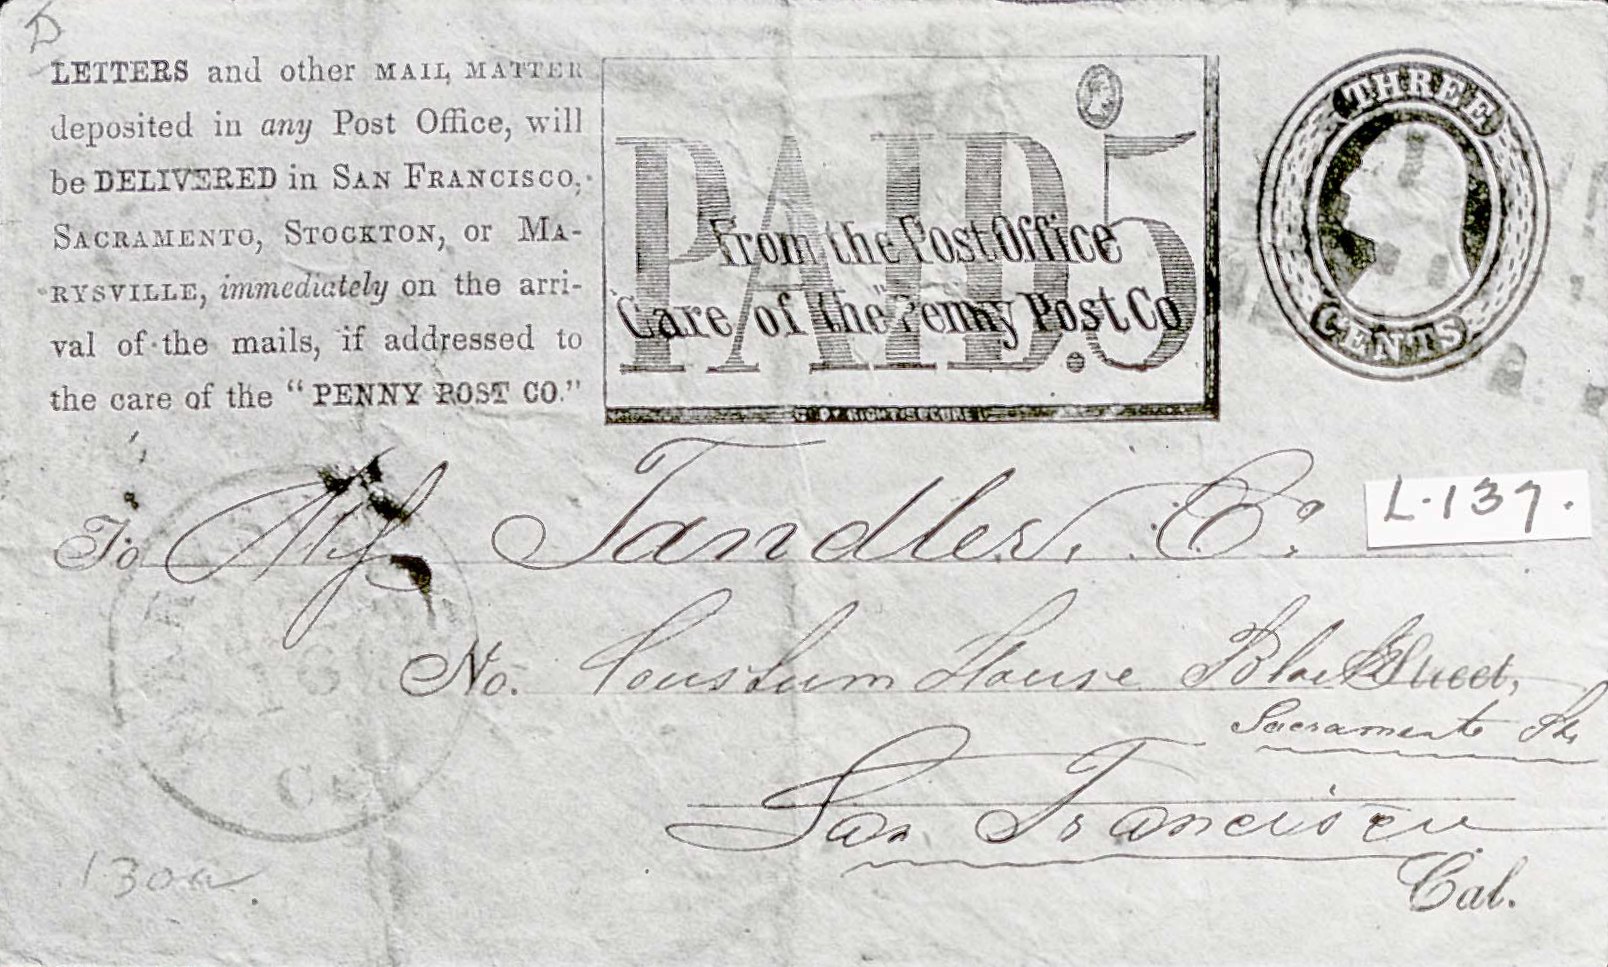 D
LETTERS and other MAIL MATTER
deposited in any Post Office, will
be DELIVERED in SAN FRANCISCO,
SACRAMENTO, STOCKTON, or MA-
RYSVILLE, immediately on the arri-
val of the mails, if addressed to
the care of the "PENNY POST CO."
PAID.5
From the Post Office
Care of the "Penny Post Co
COPY RIGHT SECURED
THREE
CENTS
L-137.
To Tandler. Co.
No. Coustum House Block Street,
Sacramento
San Francisco
Cal.
130a